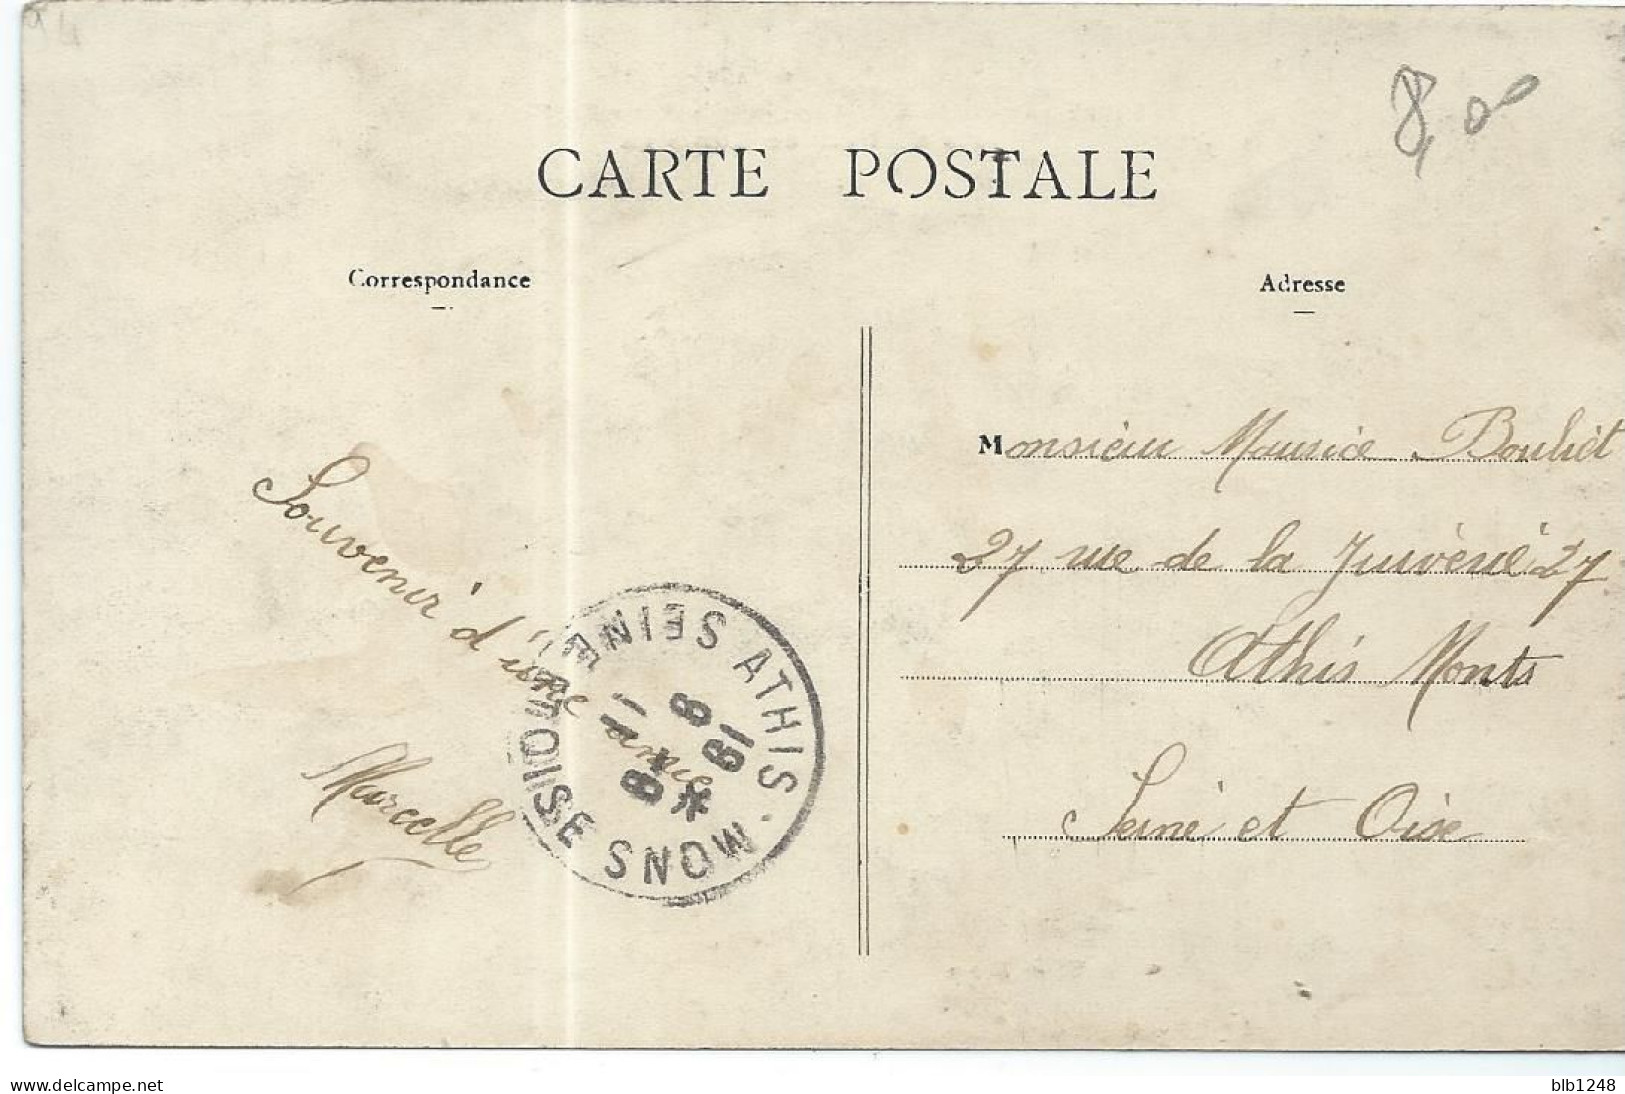 94
8,00
CARTE POSTALE
Correspondance
Adresse
Souvenir d'une amie
Marcelle
ATHIS-MONS SEINE-ET-OISE
Monsieur Maurice Bouliet
27 rue de la Juvenie 27
Athis Monts
Seine et Oise
www.delcampe.net
blb1248